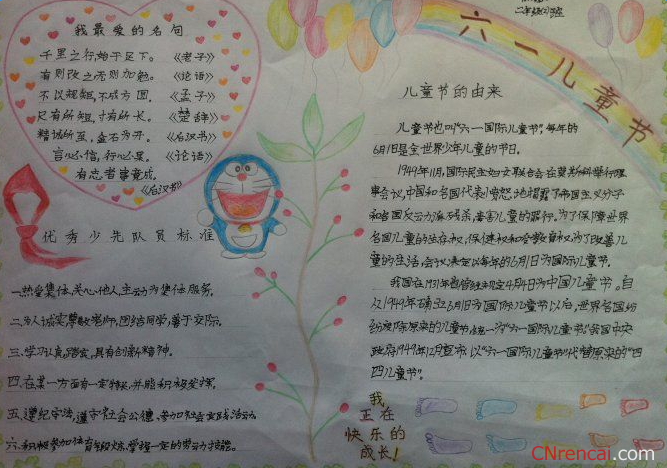 二年级
六一儿童节
我最爱的名句
千里之行,始于足下。《老子》
有则改之,否则加勉。《论语》
不以规矩,不成方圆。《孟子》
尺有所短,寸有所长。《楚辞》
精诚所至,金石为开。《后汉书》
言必信,行必果。《论语》
有志者事竟成。
《后汉书》
优秀少先队员标准
一.热爱集体,关心他人,主动为集体服务。
二.为人诚实,尊敬老师,团结同学,善于交际。
三.学习认真,踏实,具有创新精神。
四.在某一方面有一定特长,并能积极发挥。
五.遵纪守法,遵守社会公德,参加社会实践活动。
六.积极参加体育锻炼,掌握一定的劳动技能。
儿童节的由来
儿童节也叫“六一国际儿童节”,每年的
6月1日是全世界少年儿童的节日。
1949年11月,国际民主妇女联合会在莫斯科举行理
事会议,中国和各国代表愤怒地揭露了帝国主义分子
和各国反动派残杀、毒害儿童的罪行。为了保障世界
各国儿童的生存权、保健权和受教育权,为了改善儿
童的生活,会议决定以每年的6月1日为国际儿童节。
我国在1931年曾规定4月4日为中国儿童节。自
从1949年确立6月1日为国际儿童节以后,世界各国纷
纷废除原来的儿童节,统一为“六一国际儿童节”我国中央
政府1949年12月宣布,以“六一国际儿童节”代替原来的“四
四儿童节”。
我
正在
快乐的
成长!
CNrencai.com